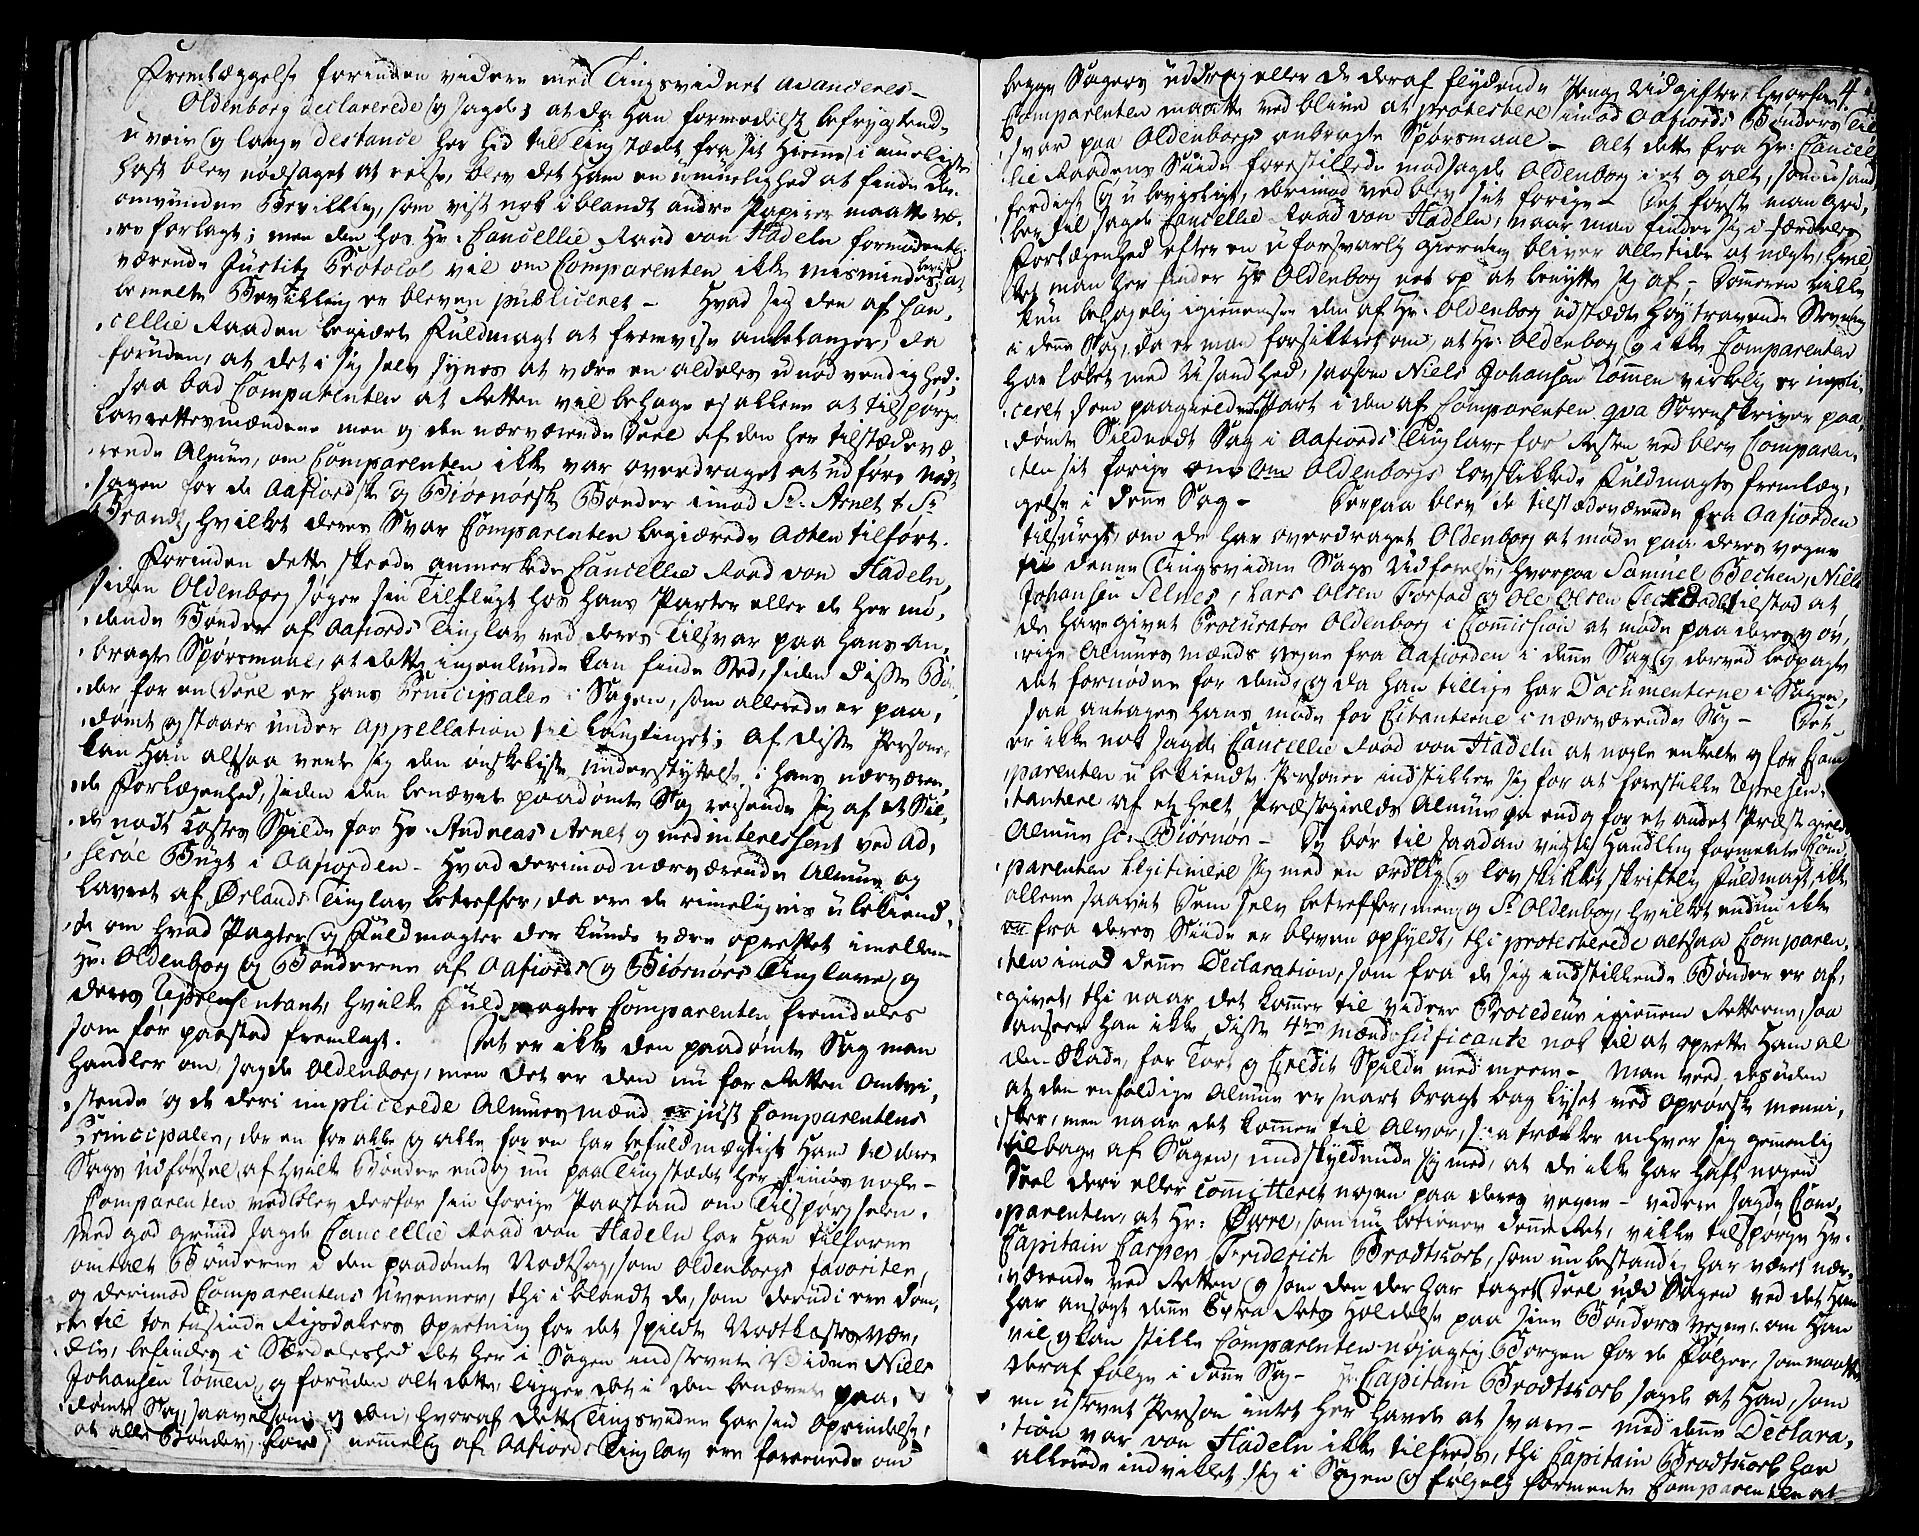 Fremlæggelse forinden videre med Tingsvidnet avanceres –
Oldenborg declarerede og sagde; at da Han formedelst befrygtend
uveir og lange destance her hid til Ting stædet fra sit Hiemme i muligste
hast blev nødsaget at reise, blev det Ham en umuelighed at finde den
omvundne Bevilling, som vist nok iblandt andre Papirer maatte væ-
re forlagt; men den hos Hr: Cancellie Raad von Hadeln formodentlig
værende Justitz Protocol vil om Comparenten ikke misminder
bemelte Bevilling er bleven publiceret – Hvad sig den af Can-
cellie Raaden begiærte Fuldmagt at fremvise anbelanger, da
foruden, at det i sig selv synes at være en aldeles unødvendighed;
saa bad Comparenten at Retten vil behage ej allene at tilspørge
Laurettesmændene men og den nærværende Deel af den her tilstædevæ-
rende Almue, om Comparenten ikke var overdraget at udføre Nodt
sagen for de Aafiordske og Biørnørske Bønder imod Sr. Arnet & Sr
Brandt, hvilket deres Svar Comparenten begiærede Acten tilført.
Forinden dette skeede anmerkede Cancellie Raad von Hadeln,
siden Oldenborg søger sin Tilflugt hos hans Parter eller de her mø-
dende Bønder af Aafiords Tinglav ved deres Tilsvar paa hans An-
bragte Spørsmaal, at dette ingenlunde kan finde Sted, siden disse Bøn-
der for en Deel er hans Principaler i Sagen, som allerede er paa-
dømt og staaer under Appellation til Laugtinget; af disse Personer
kan Han altsaa vente sig den ønskeligste understyttelse i hans nærværen-
de Forlægenhed, siden den benævnte paadømte Sag reisende sig af et Sil-
de nodt Kastes Spilde for Hr. Andreas Arnet og medinteressent ved Ad-
seröe Bugt i Aafiorden – Hvad derimod nærværende Almue og
Lauret af Ørlands Tinglav betreffer, da ere de rimeligvis ubekiend-
te om hvad Pagter og Fuldmagter der kunde være oprettet imellem
Hr: Oldenborg og Bønderne af Aafiords og Biørnørs Tinglave, og
deres Repræsentant, hvilke Fuldmagter Comparenten fremdeles
som før paastod fremlagt. Det er ikke den paadømte Sag man
handler om, sagde Oldenborg, men Det er den nu for Retten Omtvi-
stende og de deri implicerede Almues mænd er just Comparentens
Principaler, der en for alle og alle for en har befuldmægtiget Ham til dere
Sags udførsel, af hvilke Bønder endog nu paa Tingstædet her findes nogle –
Comparenten vedblev derfor sin forrige Paastand om Tilspørgselen.
Med god grund sagde Cancellie Raad von Hadeln har Han tilforne
omtalt Bønderne i den paadømte Nodtsag, som Oldenborgs favoriter,
og derimod Comparentens uvenner, thi iblandt de, som derudi ere døm-
te til toe tusinde Rixdalers Opretning for det spildte Nodtkastes vær-
die, befindes i Særdeleshed det her i Sagen indstevnte Vidne Niels
Johansen Tømmen, og foruden alt dette, ligger det i den benævnte paa-
dømte Sag, saavelsom og den, hvoraf dette Tingsvidne har sin Oprindelse,
at alle Bønder, nemmelig af Aafiords Tinglav ere foreenede om
4.
begge Sagers uddrag eller de deraf flydende Penge Udgifter, hvorfor
Comparenten maatte ved blive at protestere imod Aafiords Bønders Til
svar paa Oldenborgs anbragte Spørsmaal – Alt dette fra Hr: Cancel-
lie Raadens Siide forestillede modsagde Oldenborg i et og alt, som usand-
færdigt og ubeviisligt, derimod ved blev sit forrige – Det første man gri-
ber til sagde Cancellie Raad von Hadeln, naar man finder sig i særdeles
Forlægenhed efter en uforsvarlig gierning bliver alletider at negte, hvil-
ket man her finder Hr Oldenborg nok op at benytte sig af – Dommeren ville
kun behagelig igiennemse den af Hr: Oldenborg udstædte høytravende Stevning
i denne Sag, da er man forsikkret om, at Hr: Oldenborg og ikke Comparenten
har løbet med Usandhed, saasom Niels Johansen Tømmen virkelig er impli-
ceret dom paagieldende Part i den af Comparenten qva Sorenskriver paa-
dømte Sildnodt Sag i Aafiords Tinglav for Resten ved blev Comparen-
ten sit forrige om Oldenborgs lovskikkede Fuldmagts fremlæg-
gelse i denne Sag – Herpaa blev de tilstædeværende fra Aafiorden
tilspurgt, om de har overdraget Oldenborg at møde paa deres vegne
til denne Tingsvidne Sags Udførelse, hvorpaa Samuel Bechen, Niels
Johansen Selnes, Lars Olsen Forfod og Ole Olsen tilstod at
de have givet Procurator Oldenborg i Commission at møde paa deres og øv-
rige Almues mænds vegne fra Aafiorden i denne Sag og derved iagttage
det fornødne for dem, og da han tillige har Documenterne i Sagen,
saa antages hans møde for Citanterne i nærværende Sag – Det
er ikke nok sagde Cancellie Raad von Hadeln at nogle enkelte og for Com-
parenten ubekiendte Personer indstiller sig for at forestille Repræsen-
tantere af et heelt Præstegields Almue ja endog for et andet Præstegields
Almue sc: Biørnør – De bør til saadan vigtig Handling formeente Com-
parenten legitimere sig med en ordlig og lovskikket skriftlig Fuldmagt, ikke
allene saavit Dem selv betreffer, men og Sr. Oldenborg, hvilket endnu ikke
fra deres Siide er bleven opfyldt, thi protesterede altsaa Comparen-
ten imod denne Declaration, som fra de sig indstillende Bønder er af-
givet, thi naar det kommer til videre Procedeure igiennem Retterne, saa
ansees han ikke disse 4re mænd suficante nok til at oprette Ham al
den Skade, for Tort og Credit Spilde med meere – Man veed desuden
at den enfoldige Almue er snart bragt bag lyset ved oprørske menni-
sker, men naar det kommer til Alvor, saa trækker enhver sig gemenlig
tilbage af Sagen, undskyldende sig med, at de ikke har haft nogen
Deel deri eller committeret nogen paa deres vegne – videre sagde Com-
parenten, at Hr: Øvre, som nu betiener denne Ret, ville tilspørge Hr.
Capitain Casper Friderich Brodtkorb, som nu bestandig har været nær-
værende ved Retten og som den der har taget Deel udi Sagen ved det Han
har ansøgt denne Extra Rets Holdelse paa sine Bønders vegne, om Han
vil og kan stille Comparenten nøjagtig Borgen for de Følger, som maatte
deraf følge i denne Sag – Hr. Capitain Brodtkorb sagde at Han, som
en ustevnt Person intet her havde at svare – Med denne Declara-
tion var von Hadeln ikke tilfreds, thi Capitain Brodtkorb har
allerede indviklet sig i Sagen og følgelig formeente Comparenten at